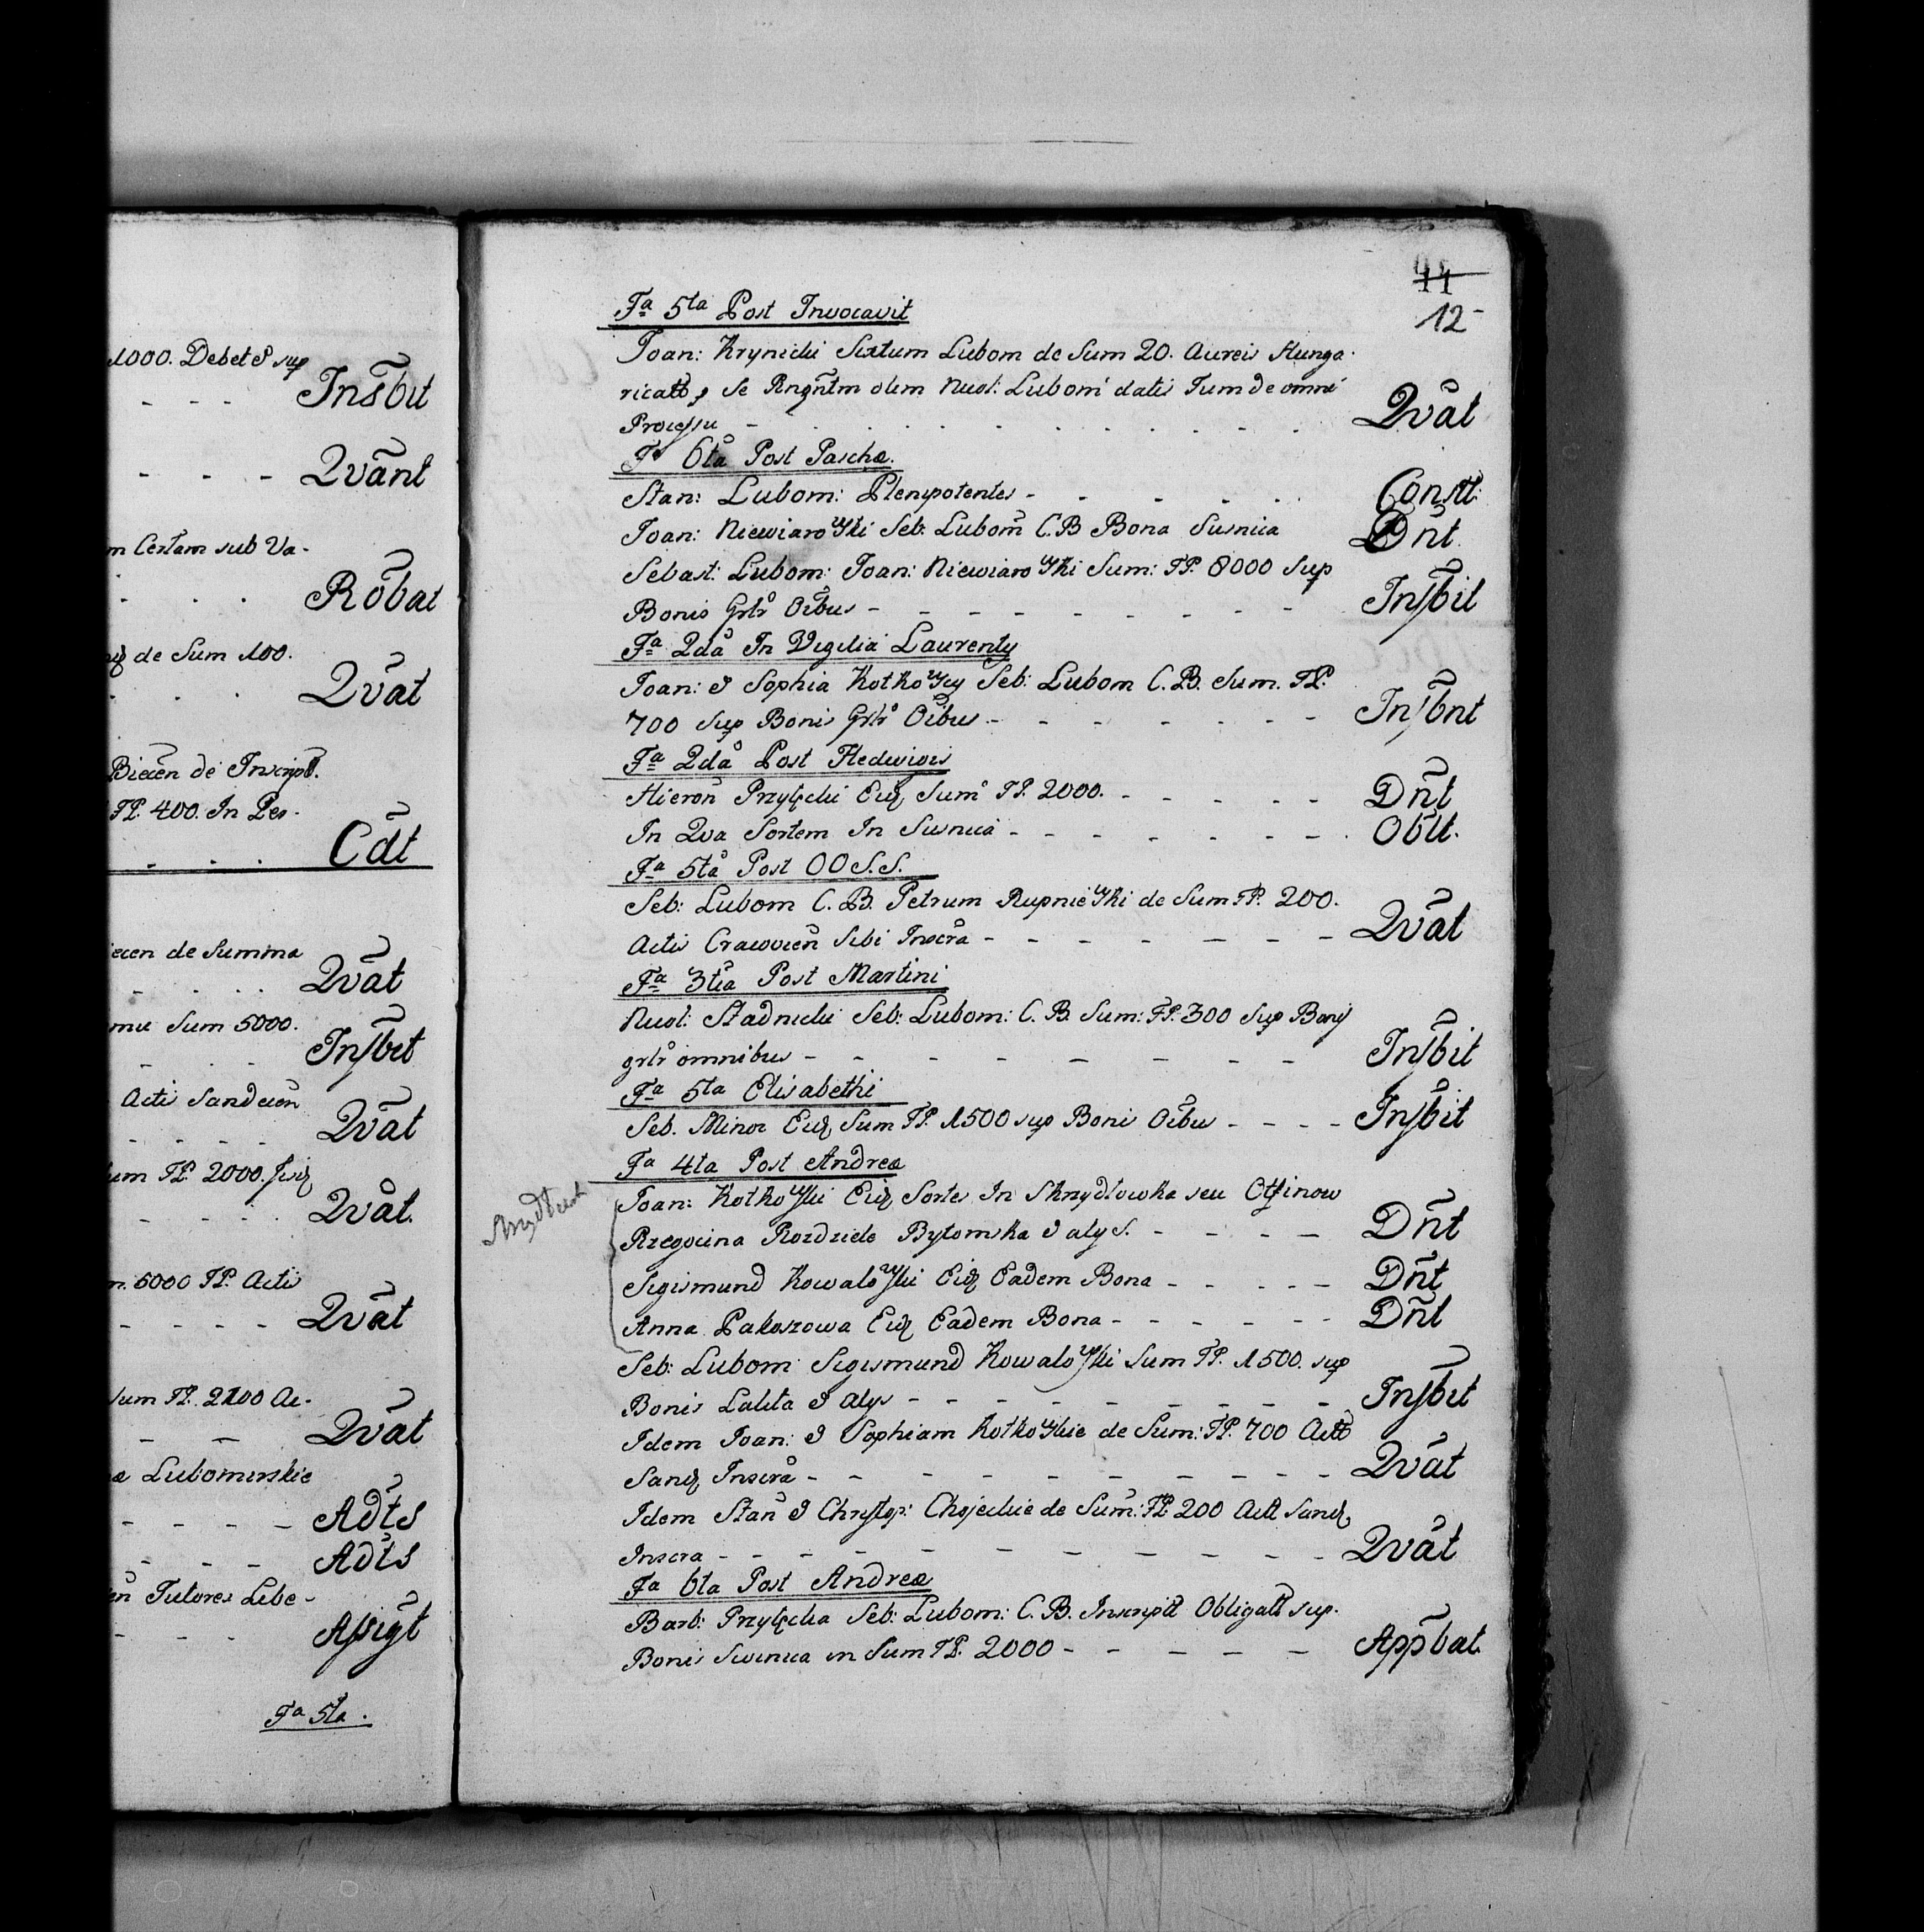 1000. Debet & sup
Insbit
Qvant
m Certam sub Va-
Robat
de Sum 100.
Qvat
Biecen de Inscript.
FP. 400. In Per-
Cdt
ecen de Summa
Qvat
Sum 5000.
Insbit
Actis Sandecen
Qvat
um FP. 2000.
Qvat.
m. 6000 FP. Actis
Qvat
Sum FP. 2100 Ac-
Qvat
æ Lubomirskie
Adts
Adts
en Tutores Libe-
Assigt
Fa 5ta.
11
12
Fa 5ta Post Invocavit
Joan: Krynicki Sixtum Lubom de Sum 20. Aureis Hunga-
ricalb p se Rngntm olim Nicol: Lubom datis Tum de omni
Processu - Qvat
Fa 6ta Post Pascha.
Stan: Lubom: Plenipotentes - Constt:
Joan: Niewiarowski Seb: Lubom C.B Bona Susnica Dnt.
Sebast: Lubom: Joan: Niewiarowski Sum: FP. 8000 sup
Bonis Grlr Oibus - Insbit
Fa 2da In Vigilia Laurenty
Joan: & Sophia Kotkowscy Seb: Lubom C.B. Sum. FP.
700 sup Bonis Grlr Oibus - Insbnt
Fa 2da Post Hedwigis
Hieron Przyłęcki Eidem Sum FP. 2000. - Dnt
In Qva Sortem In Susnica - Oblt.
Fa 5ta Post OO S.S.
Seb: Lubom C.B. Petrum Rupniewski de Sum FP. 200.
Actis Cracovien Sibi Inscra - Qvat
Fa 3tia Post Martini
Nicol: Stadnicki Seb: Lubom: C.B. Sum: FP. 300 sup Bonis
grlr omnibus - Insbit
Fa 5ta Elisabethi
Seb. Minor Eidem Sum FP. 1500 sup Bonis Oibus - Insbit
Fa 4ta Post Andreæ
Joan: Kotkowski Eidem Sortes In Skrzydłowka seu Otfinow
Rzegocina Rozdziele Bytomska & alys. - Dnt
Sigismund Kowalowski Eidem Eadem Bona - Dnt
Anna Pakoszowa Eidem Eadem Bona - Dnt
Seb: Lubom: Sigismund Kowalowski Sum FP. 1500. sup
Bonis Laleta & alys - Insbit
Idem Joan: & Sophiam Kotkowskie de Sum: FP. 700 Actt
Sand Inscra - Qvat
Idem Stan & Christop: Chojeckie de Sum: FP. 200 Actt Sand
Inscra - Qvat
Fa 6ta Post Andreæ
Barb: Przyłęcka Seb: Lubom: C.B. Inscript Obligatt sup.
Bonis Swinica in Sum FP. 2000 - Appbat